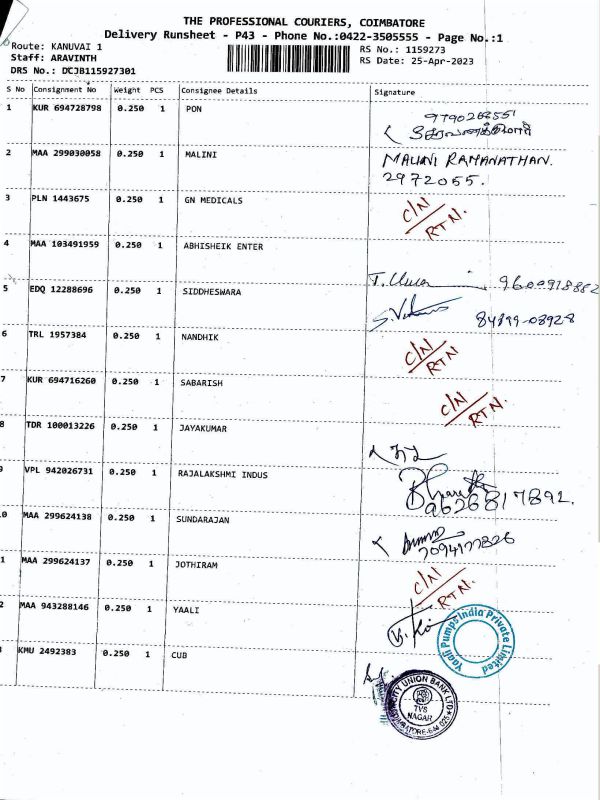 THE PROFESSIONAL COURIERS, COIMBATORE
Delivery Runsheet - P43 - Phone No.:0422-3505555 - Page No.:1
Route: KANUVAI 1
Staff: ARAVINTH
DRS No.: DCJB115927301
RS No.: 1159273
RS Date: 25-Apr-2023
S No Consignment No Weight PCS Consignee Details Signature
1 KUR 694728798 0.250 1 PON
2 MAA 299030058 0.250 1 MALINI MALINI RAMANATHAN.
2972055.
3 PLN 1443675 0.250 1 GN MEDICALS C/N
RTN.
4 MAA 103491959 0.250 1 ABHISHEIK ENTER
5 EDQ 12288696 0.250 1 SIDDHESWARA 9600918882
84899-08928
6 TRL 1957384 0.250 1 NANDHIK C/N
RTN.
7 KUR 694716260 0.250 1 SABARISH C/N
RTN.
8 TDR 100013226 0.250 1 JAYAKUMAR
VPL 942026731 0.250 1 RAJALAKSHMI INDUS
9626817892.
0 MAA 299624138 0.250 1 SUNDARAJAN
7094177826
1 MAA 299624137 0.250 1 JOTHIRAM C/N
RTN.
2 MAA 943288146 0.250 1 YAALI
Yaali Pumps India Private Limited
KMU 2492383 0.250 1 CUB
CITY UNION BANK LTD
TVS
NAGAR
COIMBATORE-641 025